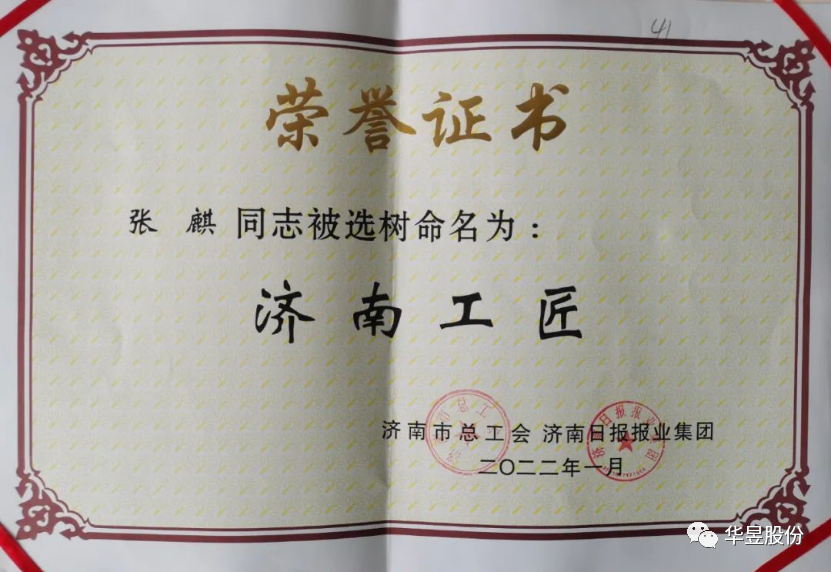 41
荣誉证书
张麒同志被选树命名为：
济南工匠
济南市总工会 济南日报报业集团
二〇二二年一月
华昱股份